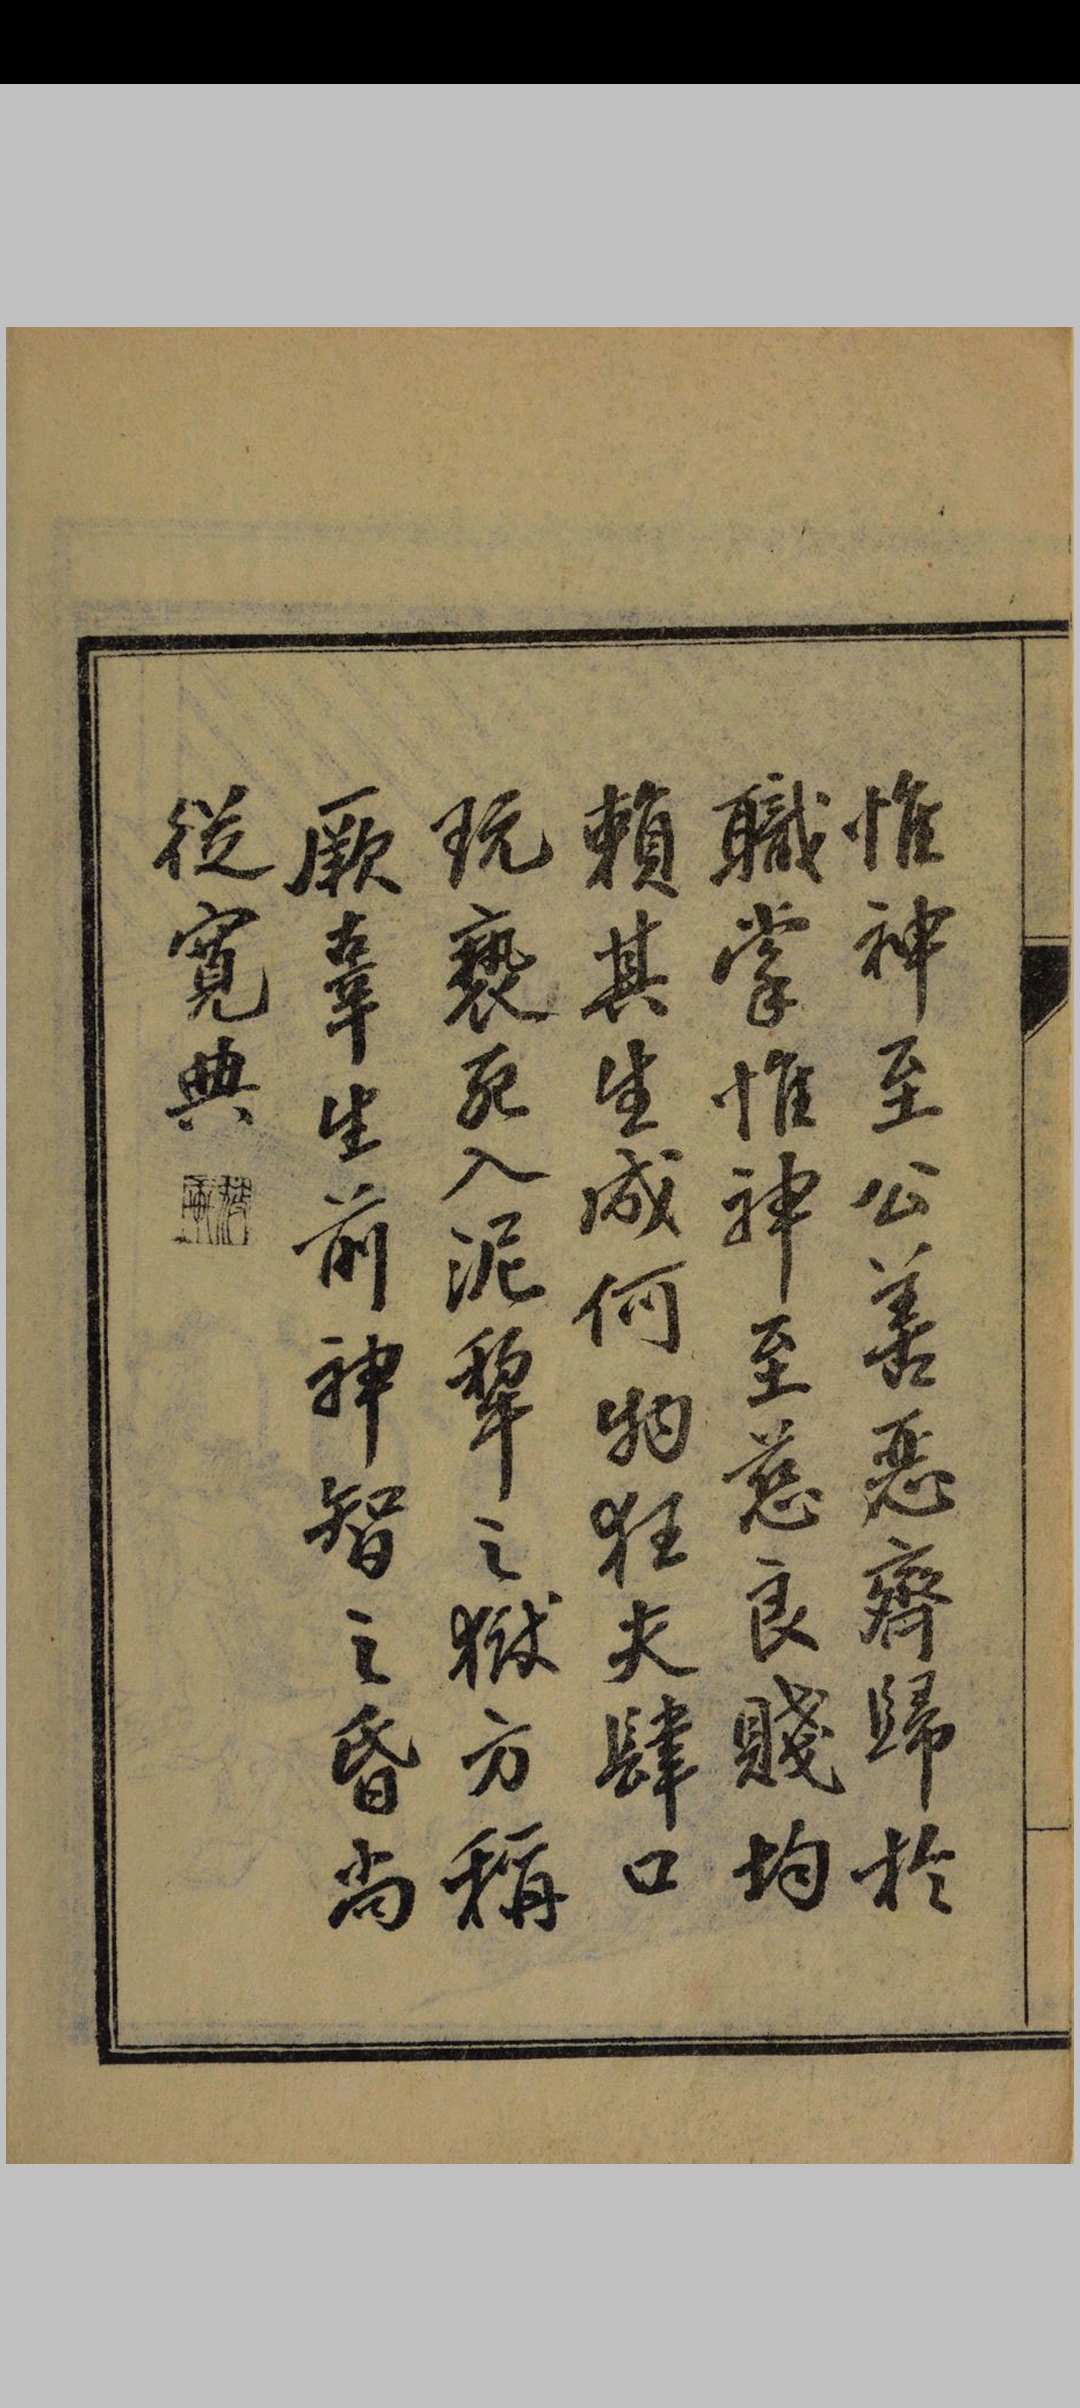 惟神至公善惡齊歸於
職掌惟神至慈良賤均
賴其生成何物狂夫肆口
玩褻死入泥犂之獄方稱
厥辜生前神智之昏尚
從寬典